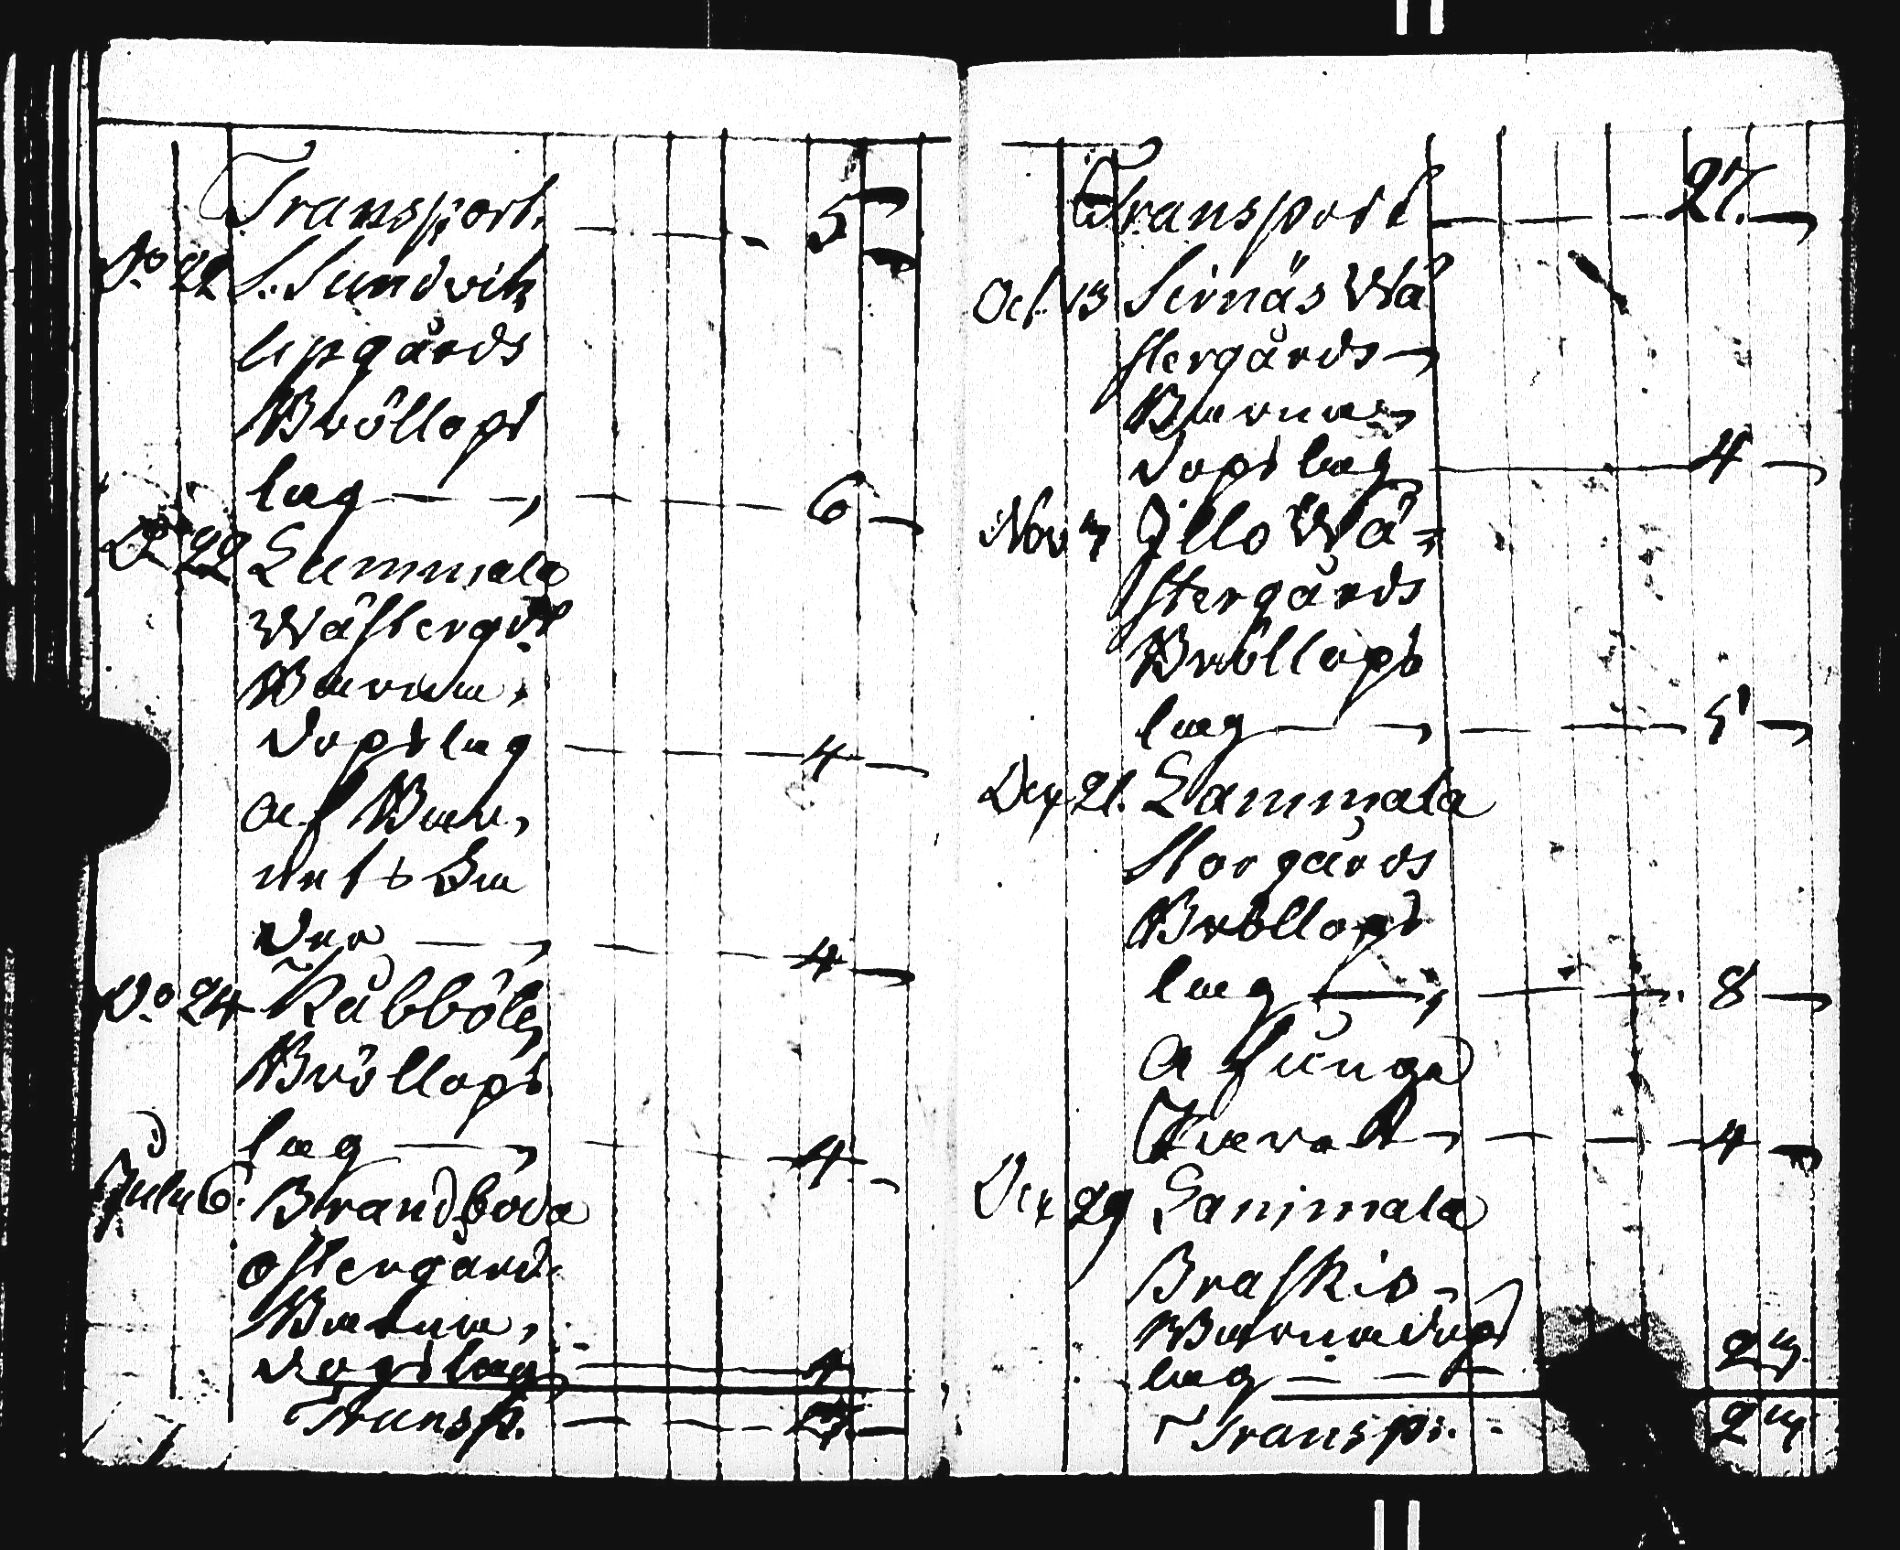 Transport. — — — 5 —
Do 22 S. Sundvik
uppgårds
Bröllops
lag — — — — 6 —
Do 22 Lammala
Wästergds
Barna,
dopslag — — — 4 —
af Bar,
nets Fa
der — — — — 4 —
Do 24 Rabböle
Bröllops
lag — — — — 4 —
Julii 6. Brandboda
östergårds
Barna,
dopslag — — 4
Transp. — — — 27. —
Transport — — — 27. —
Oct 13 Sirnäs Wä
stergårds
Barna,
dopslag — — 4 —
Nov 3 Illo Wä=
stergårds
Bröllops
lag — — — — 5 —
Dec 21. Lammala
Storgårds
Bröllops
lag — — — — 8 —
af unga
— — — 4 —
Dec 29 Lammala
Braskis-
Barnadops
lag — — —
Transp.